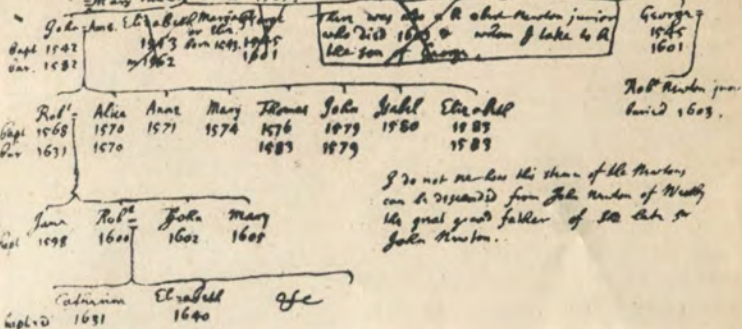 John = Anne. Elizabeth Mary George
or Ann.
Bapt 1542 1543 born 1543. 1545
bur. 1582 m 1562 1601
There was also a Robert Newton junior
who died 1603 & whom I take to be
the son of George.
George =
1545
1601
Robt Newton junr
buried 1603.
Robt = Alice Anne Mary Thomas John Isabel Elizabeth
Bapt 1568 1570 1571 1574 1576 1579 1580 1583
Bur 1631 1570 1583 1579 1583
I do not see how this stem of the Newtons
can be descended from John Newton of Westby
the great grand father of the late Sr
John Newton.
Jane Robt = John Mary
Bapt 1598 1600 1602 1605
Catherine Elizabeth &c
baptzd 1631 1640